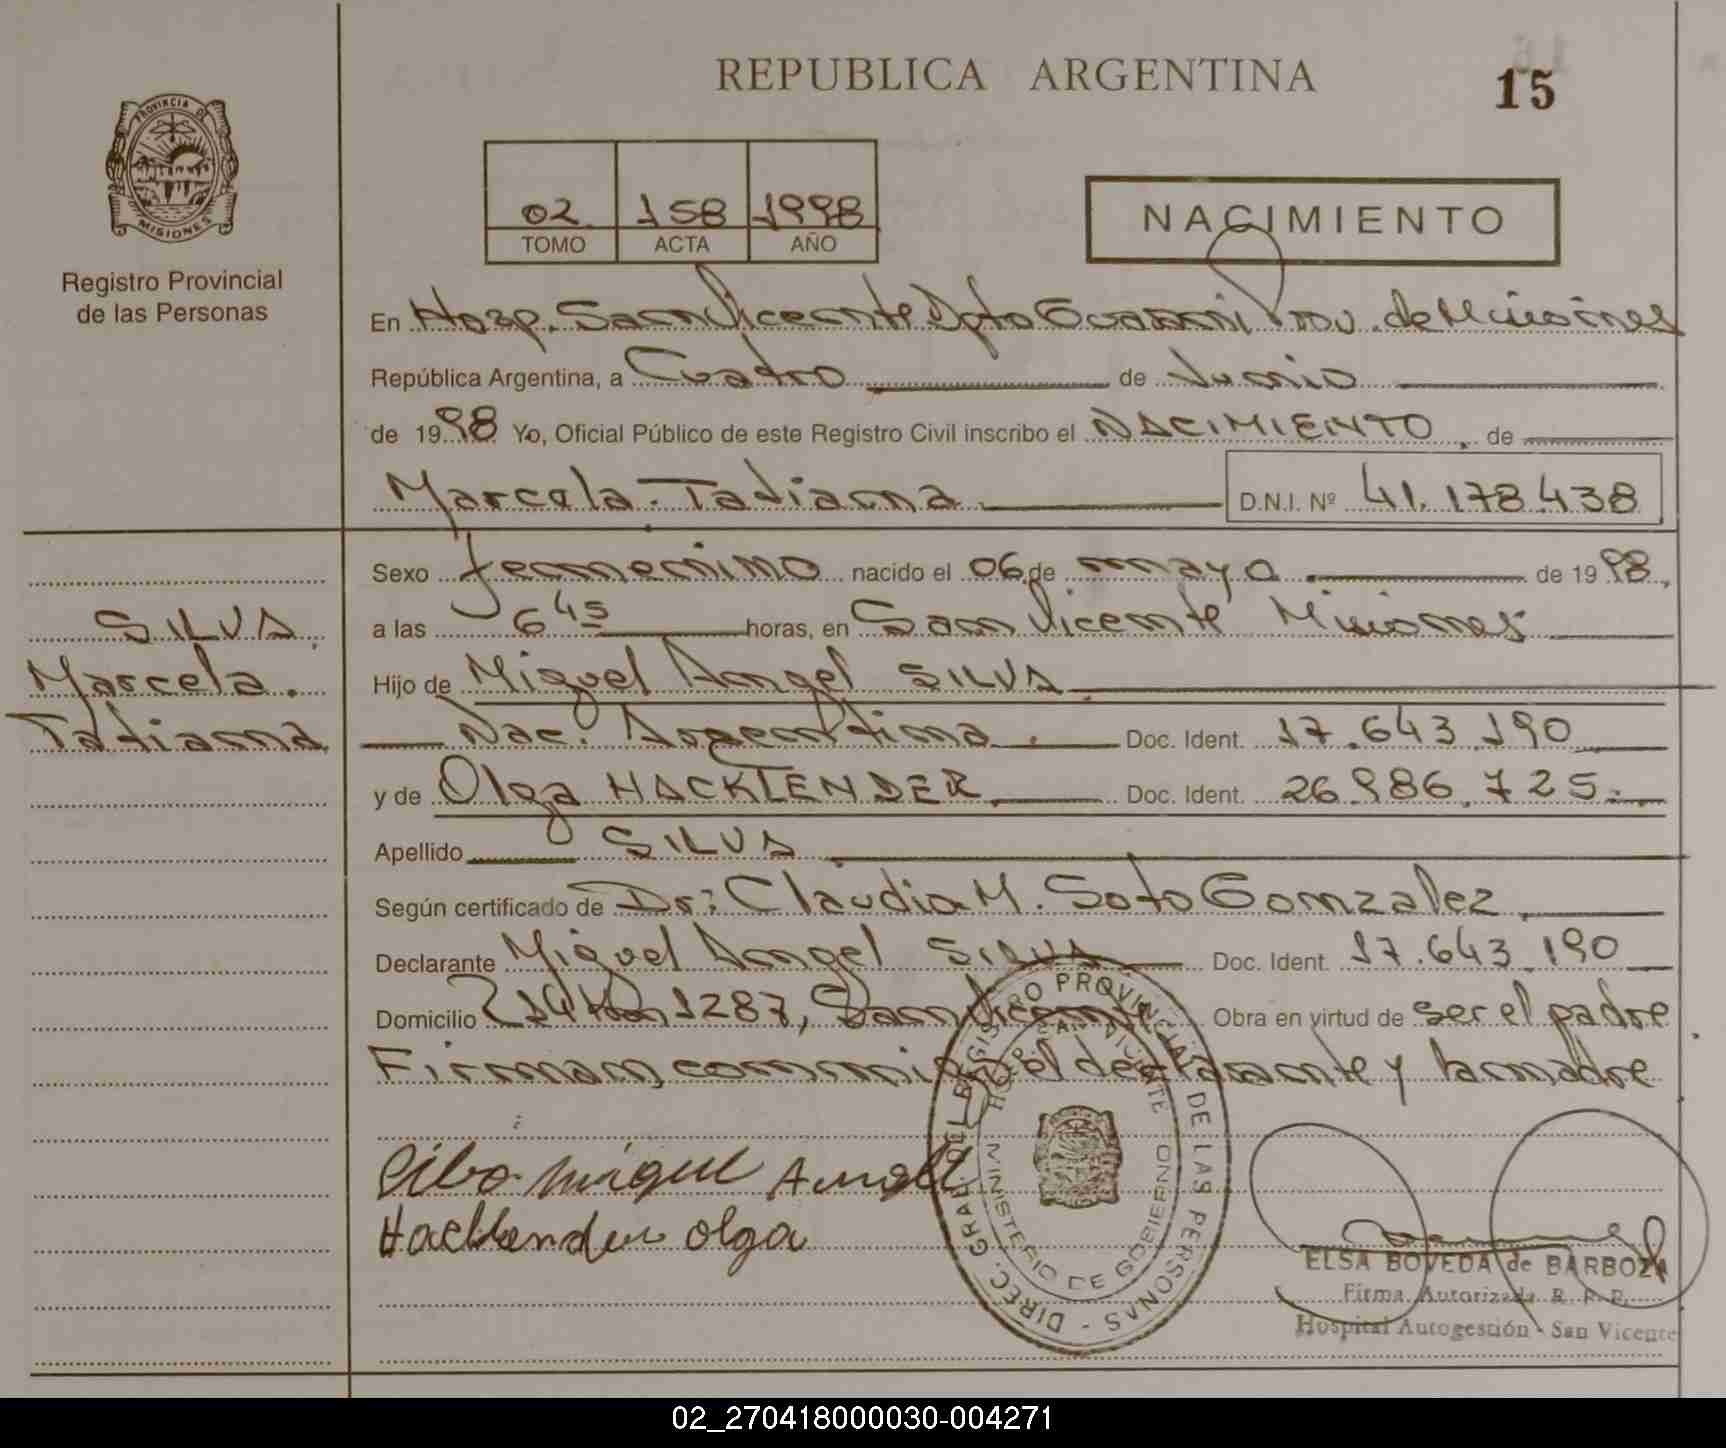 REPUBLICA ARGENTINA
15
PROVINCIA DE
MISIONES
Registro Provincial
de las Personas
02 158 1998
TOMO ACTA AÑO
NACIMIENTO
En Hosp. San Vicente Dpto Guarani Prov. de Misiones
República Argentina, a Cuatro de Junio
de 1998 Yo, Oficial Público de este Registro Civil inscribo el NACIMIENTO, de
Marcela Tatiana D.N.I. Nº 41.178.438
Sexo femenino nacido el 06 de mayo de 1998,
SILVA,
Marcela.
Tatiana
a las 6 45 horas, en San Vicente Misiones
Hijo de Miguel Angel SILVA
Nac. Argentina. Doc. Ident. 17.643.190
y de Olga HACKLENDER Doc. Ident. 26.986.725.
Apellido SILVA
Según certificado de Dr: Claudia M. Soto Gomzalez
Declarante Miguel Angel SILVA Doc. Ident. 17.643.190
Domicilio 214 Km 1287, San Vicente Obra en virtud de ser el padre
Firman conmigo el declarante y la madre
Silva miguel Angel
Hacklender olga
DIREC. GRAL. DEL REGISTRO PROVINCIAL DE LAS PERSONAS -
HOSP. SAN VICENTE
MINISTERIO DE GOBIERNO
ELSA BOVEDA de BARBOZA
Firma Autorizada R. P. P.
Hospital Autogestión - San Vicente
02_270418000030-004271